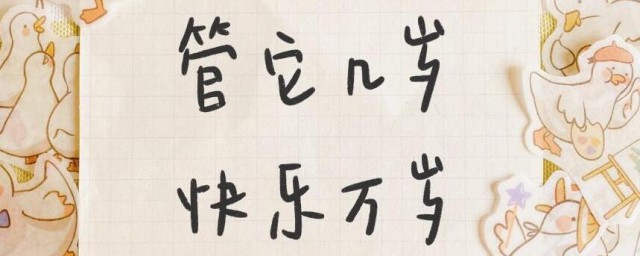 管它几岁
快乐万岁